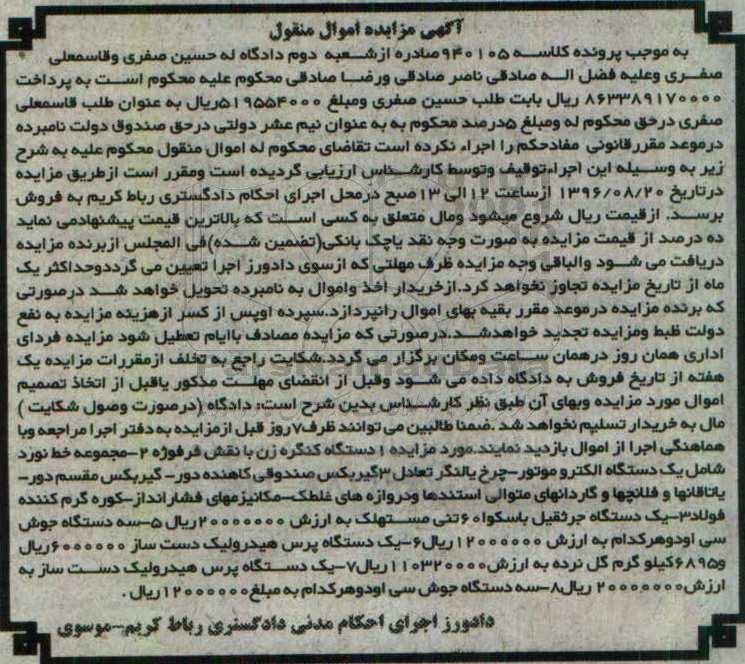 آگهی مزایده اموال منقول
به موجب پرونده کلاسه ۹۴۰۱۰۵صادره ازشعبه دوم دادگاه له حسین صفری وقاسمعلی
صفری وعلیه فضل اله صادقی ناصر صادقی ورضا صادقی محکوم علیه محکوم است به پرداخت
۸۶۳۳۸۹۱۷۰۰۰۰ ریال بابت طلب حسین صفری ومبلغ ۵۱۹۵۵۴۰۰۰ریال به عنوان طلب قاسمعلی
صفری درحق محکوم له ومبلغ ۵درصد محکوم به به عنوان نیم عشر دولتی درحق صندوق دولت نامبرده
درموعد مقررقانونی مفادحکم را اجراء نکرده است تقاضای محکوم له اموال منقول محکوم علیه به شرح
زیر به وسیله این اجراءتوقیف وتوسط کارشناس ارزیابی گردیده است ومقرر است ازطریق مزایده
درتاریخ ۱۳۹۶/۰۸/۲۰ ازساعت ۱۲ الی ۱۳صبح درمحل اجرای احکام دادگستری رباط کریم به فروش
برسد. ازقیمت ریال شروع میشود ومال متعلق به کسی است که بالاترین قیمت پیشنهادمی نماید
ده درصد از قیمت مزایده به صورت وجه نقد یاچک بانکی(تضمین شده)فی المجلس ازبرنده مزایده
دریافت می شود والباقی وجه مزایده ظرف مهلتی که ازسوی دادورز اجرا تعیین می گرددوحداکثر یک
ماه از تاریخ مزایده تجاوز نخواهد کرد.ازخریدار اخذ واموال به نامبرده تحویل خواهد شد درصورتی
که برنده مزایده درموعد مقرر بقیه بهای اموال رانپردازد.سپرده اوپس از کسر ازهزینه مزایده به نفع
دولت ظبط ومزایده تجدید خواهدشد.درصورتی که مزایده مصادف باایام تعطیل شود مزایده فردای
اداری همان روز درهمان ساعت ومکان برگزار می گردد.شکایت راجع به تخلف ازمقررات مزایده یک
هفته از تاریخ فروش به دادگاه داده می شود وقبل از انقضای مهلت مذکور یاقبل از اتخاذ تصمیم
اموال مورد مزایده وبهای آن طبق نظر کارشناس بدین شرح است: دادگاه (درصورت وصول شکایت )
مال به خریدار تسلیم نخواهد شد .ضمنا طالبین می توانند ظرف۷روز قبل ازمزایده به دفتر اجرا مراجعه وبا
هماهنگی اجرا از اموال بازدید نمایند.مورد مزایده ۱ دستگاه کنگره زن با نقش فرفوژه ۲-مجموعه خط نورد
شامل یک دستگاه الکترو موتور-چرخ یالنگر تعادل ۳گیربکس صندوقی کاهنده دور- گیربکس مقسم دور-
یاتاقانها و فلانچها و گاردانهای متوالی استندها ودروازه های غلطک-مکانیزمهای فشارانداز-کوره گرم کننده
فولاد۳-یک دستگاه جرثقیل باسکوا۶۰تنی مستهلک به ارزش ۲۰۰۰۰۰۰۰۰ریال ۵-سه دستگاه جوش
سی اودوهرکدام به ارزش ۱۲۰۰۰۰۰۰ریال۶-یک دستگاه پرس هیدرولیک دست ساز ۶۰۰۰۰۰۰ریال
و۶۸۹۵کیلو گرم گل نرده به ارزش۱۱۰۳۲۰۰۰۰ریال۷-یک دستگاه پرس هیدرولیک دست ساز به
ارزش۲۰۰۰۰۰۰۰ ریال۸-سه دستگاه جوش سی اودوهرکدام به مبلغ۱۲۰۰۰۰۰۰ریال .
دادورز اجرای احکام مدنی دادگستری رباط کریم-موسوی
ParsNamadData